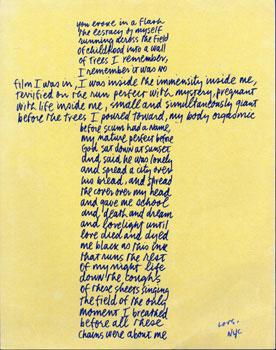 you evoke in a flash
the ecstasy of myself
running across the field
of childhood into a wall
of trees I remember,
I remember it was no
film I was in, I was inside the immensity inside me,
terrified on the run perfect with mystery, pregnant
with life inside me, small and simultaneously giant
before the trees I poured toward, my body orgasmic
before scum had a name,
my nature perfect before
God sat down at sunset
and said he was lonely
and spread a city over
his bread, and spread
the cover over my head
and gave me school
and death and dream
and lovelight until
love died and dyed
me black as this ink
that runs the rest
of my night life
down the
of these sheets singing
the field of the only
moment I breathed
before all these
chains were about me
love,
NYC